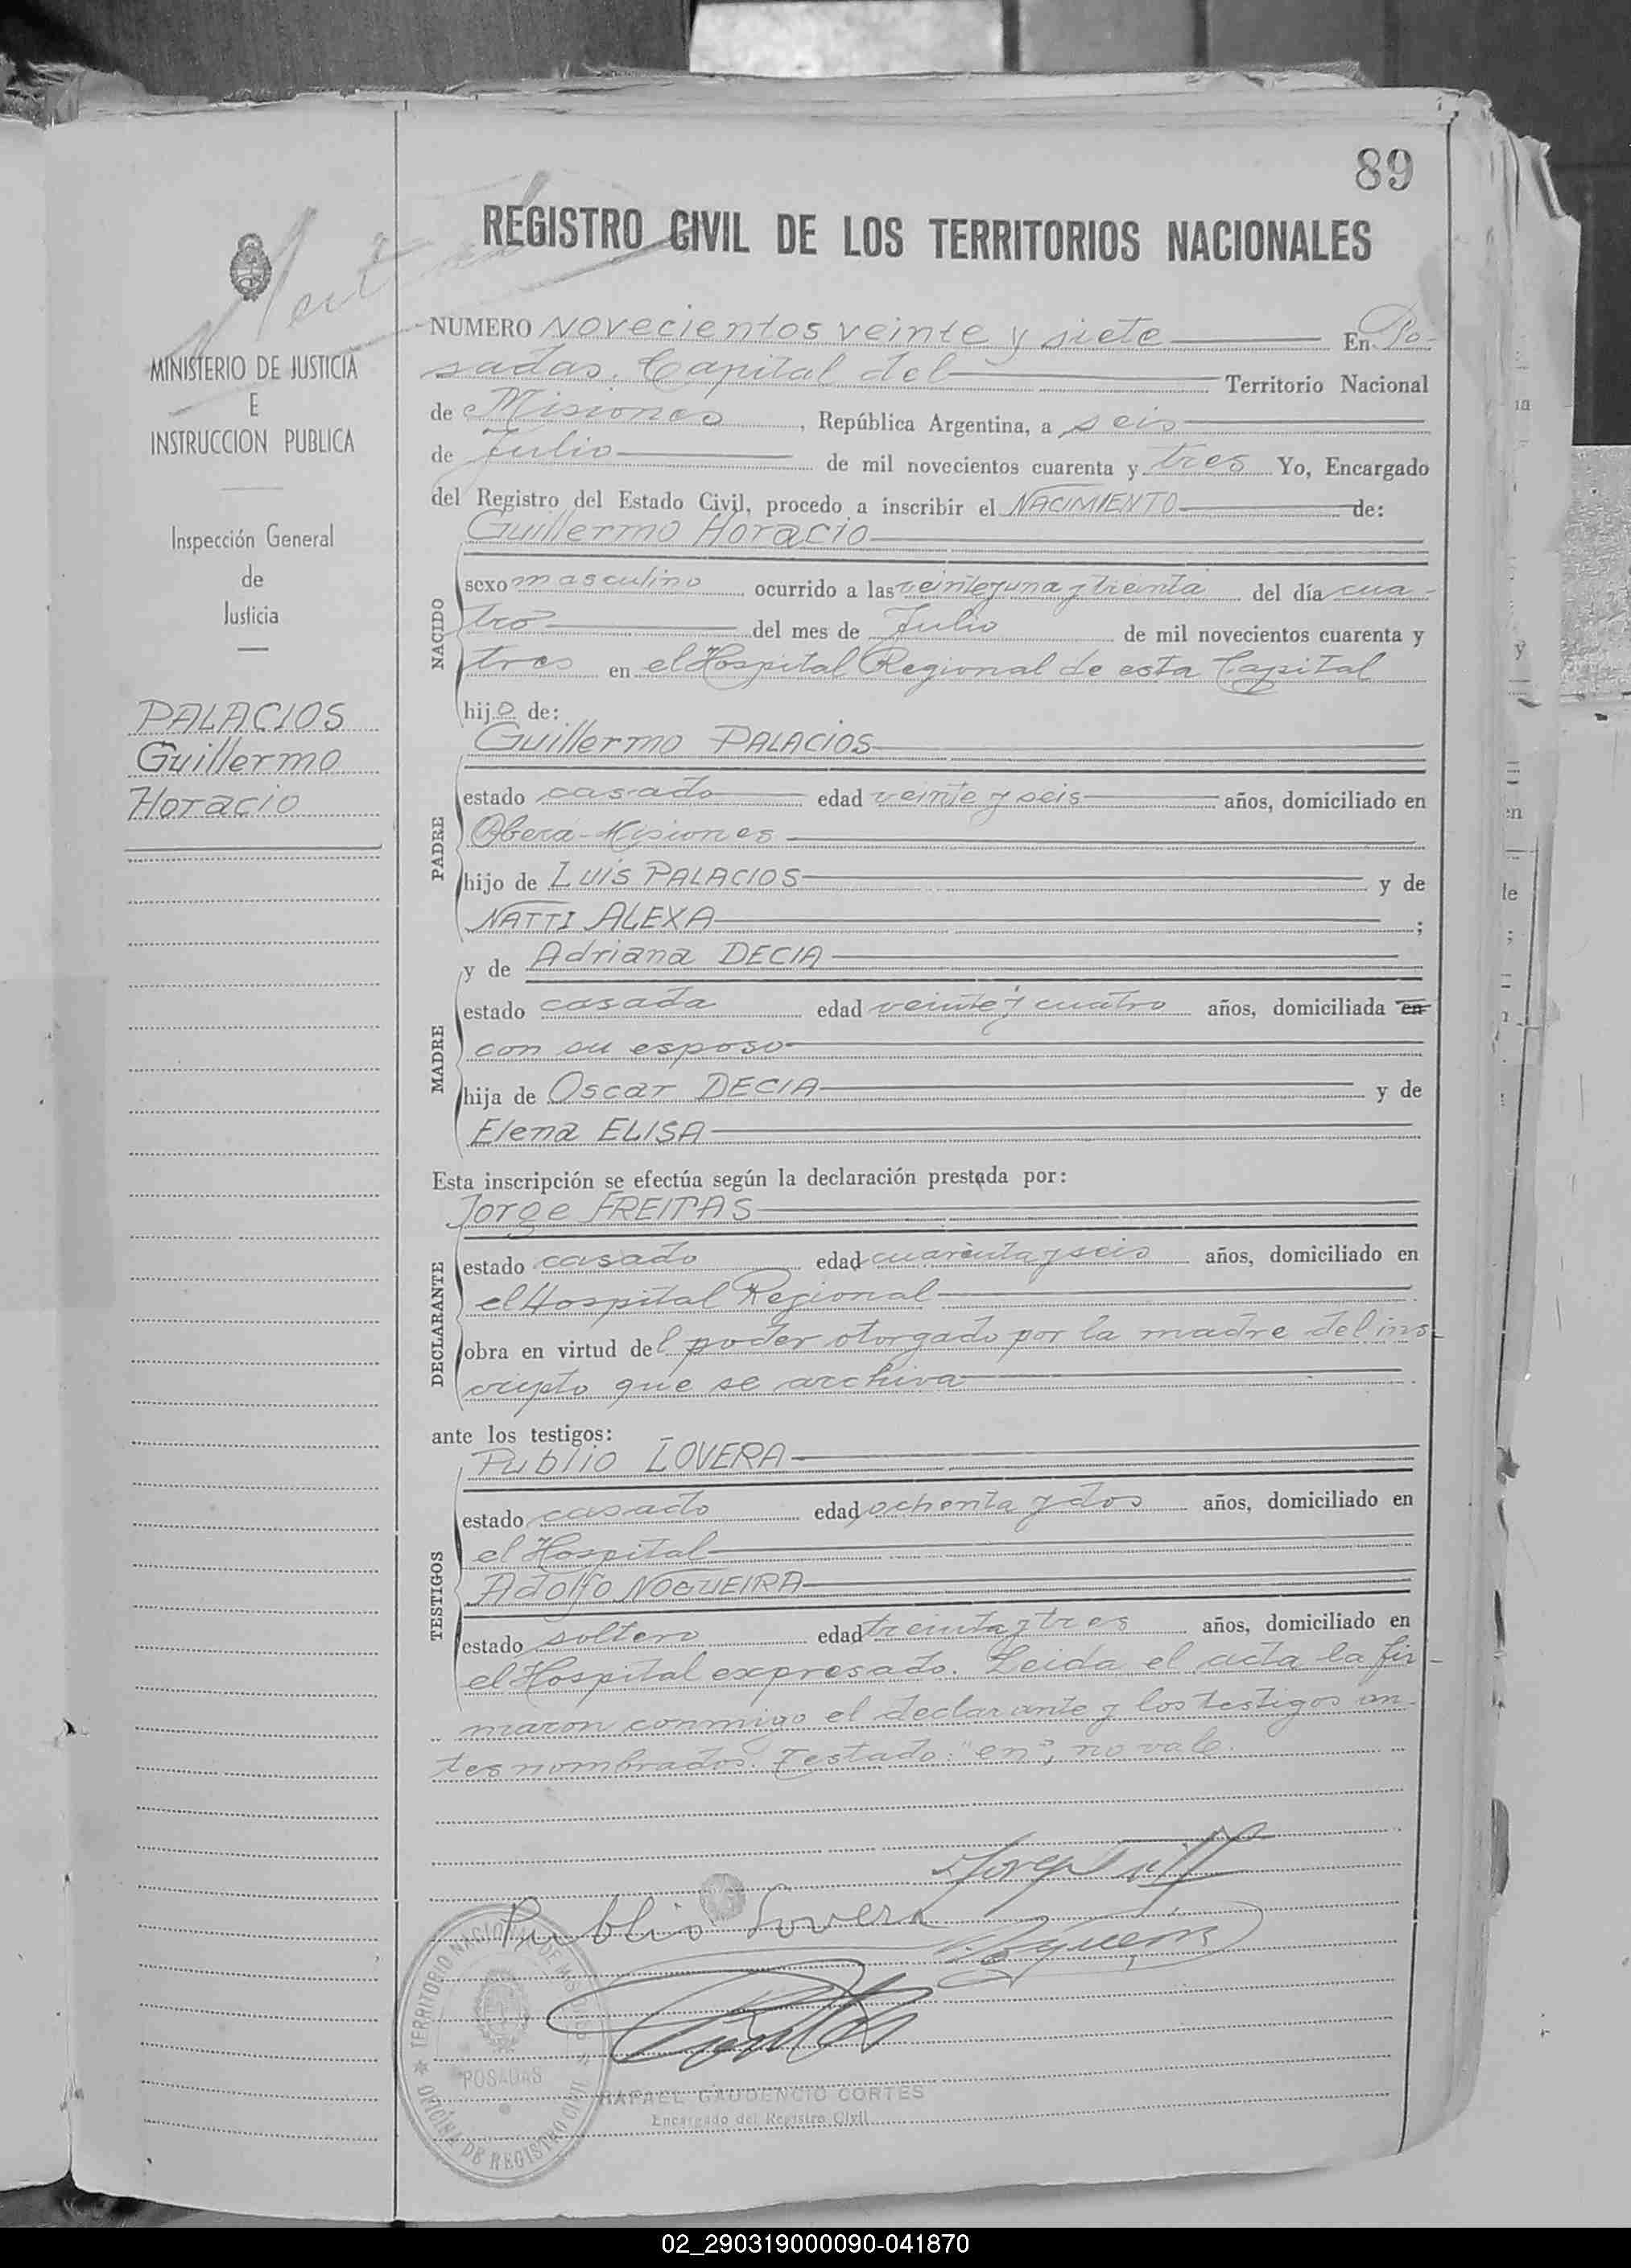 89
REGISTRO CIVIL DE LOS TERRITORIOS NACIONALES
MINISTERIO DE JUSTICIA
E
INSTRUCCION PUBLICA
Inspección General
de
Justicia
PALACIOS
Guillermo
Horacio
NUMERO Novecientos veinte y siete En Po-
sadas. Capital del Territorio Nacional
de Misiones, República Argentina, a seis
de Julio de mil novecientos cuarenta y tres Yo, Encargado
del Registro del Estado Civil, procedo a inscribir el NACIMIENTO de:
Guillermo Horacio
NACIDO
sexo masculino ocurrido a las veinteyuna y treinta del día cua-
tro del mes de Julio de mil novecientos cuarenta y
tres en el Hospital Regional de esta Capital
hijo de:
Guillermo PALACIOS
PADRE
estado casado edad veinte y seis años, domiciliado en
Oberá-Misiones
hijo de Luis PALACIOS y de
NATTI ALEXA ;
y de Adriana DECIA
MADRE
estado casada edad veinte y cuatro años, domiciliada en
con su esposo
hija de Oscar DECIA y de
Elena ELISA
Esta inscripción se efectúa según la declaración prestada por:
Jorge FREITAS
DECLARANTE
estado casado edad cuarenta y seis años, domiciliado en
el Hospital Regional
obra en virtud del poder otorgado por la madre del ins-
cripto que se archiva
ante los testigos:
Publio LOVERA
TESTIGOS
estado casado edad ochenta y dos años, domiciliado en
el Hospital
Adolfo NOGUEIRA
estado soltero edad treinta y tres años, domiciliado en
el Hospital expresado. Leida el acta la fir-
maron conmigo el declarante y los testigos an-
tes nombrados. Testado: "en", no vale.
Publio Lovera
TERRITORIO NACIONAL DE MISIONES
POSADAS
OFICINA DE REGISTRO CIVIL
RAFAEL GAUDENCIO CORTES
Encargado del Registro Civil
02_290319000090-041870